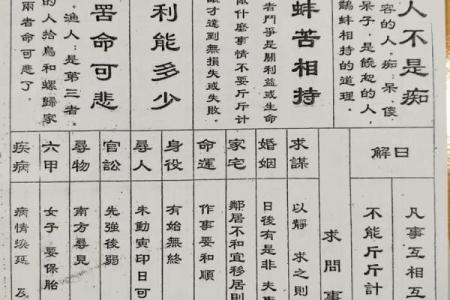 人不是痴
容的人。痴：呆俊
呆子，是饒恕的人，
鷸蚌相持的道理。
蚌苦相持
者鬥爭是關利益或生命
做什麼事情不要斤斤計
才達到無損失或失敗。
利能多少
罟命可悲
漁人：是第三者。
的人給鳥和螺歸家
兩者命可悲了。
日解
凡事互相互
不能斤斤計
求問事
求謀
以靜 求之則
婚姻
日後有是非 夫
家宅
鄰居不和宜移居則
命運
作事要和順
身役
有始無終
尋人
未動寅印日可
官訟
先強後弱
尋物
南方尋見
六甲
女子 要保胎
疾病
病情 延 及